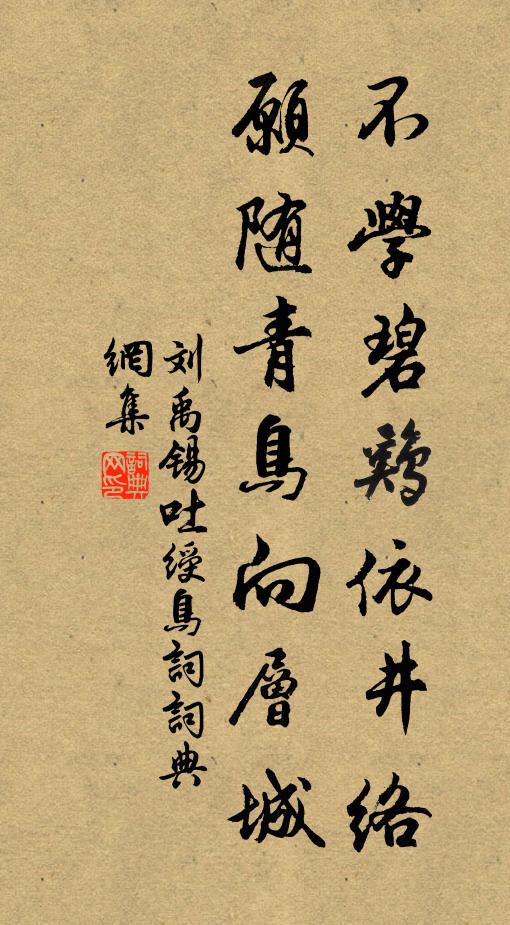 不學碧鷄依井絡
願随青鳥向層城
刘禹锡吐綬鳥詞詞典
網集
詞典
网印